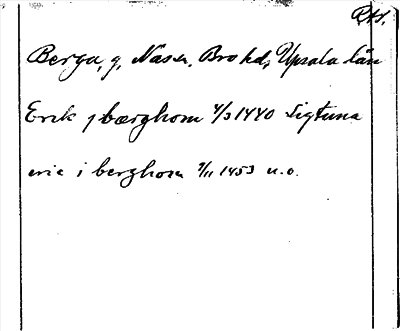 RA1.
Berga, g, Näs sn, Bro hd, Upsala län
Erik j bærghom 4/3 1440 Sigtuna
eric i berghom 7/11 1453 u.o.